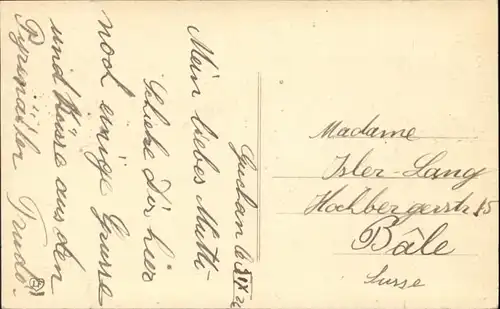 Guchan le
Mein liebes Mutti
Schicke Dir hier
noch einige Grüsse
und Küsse aus den
Pyrenäen
Trudi
Madame
Isler-Lang
Hochbergerstr 15
Bâle
Suisse